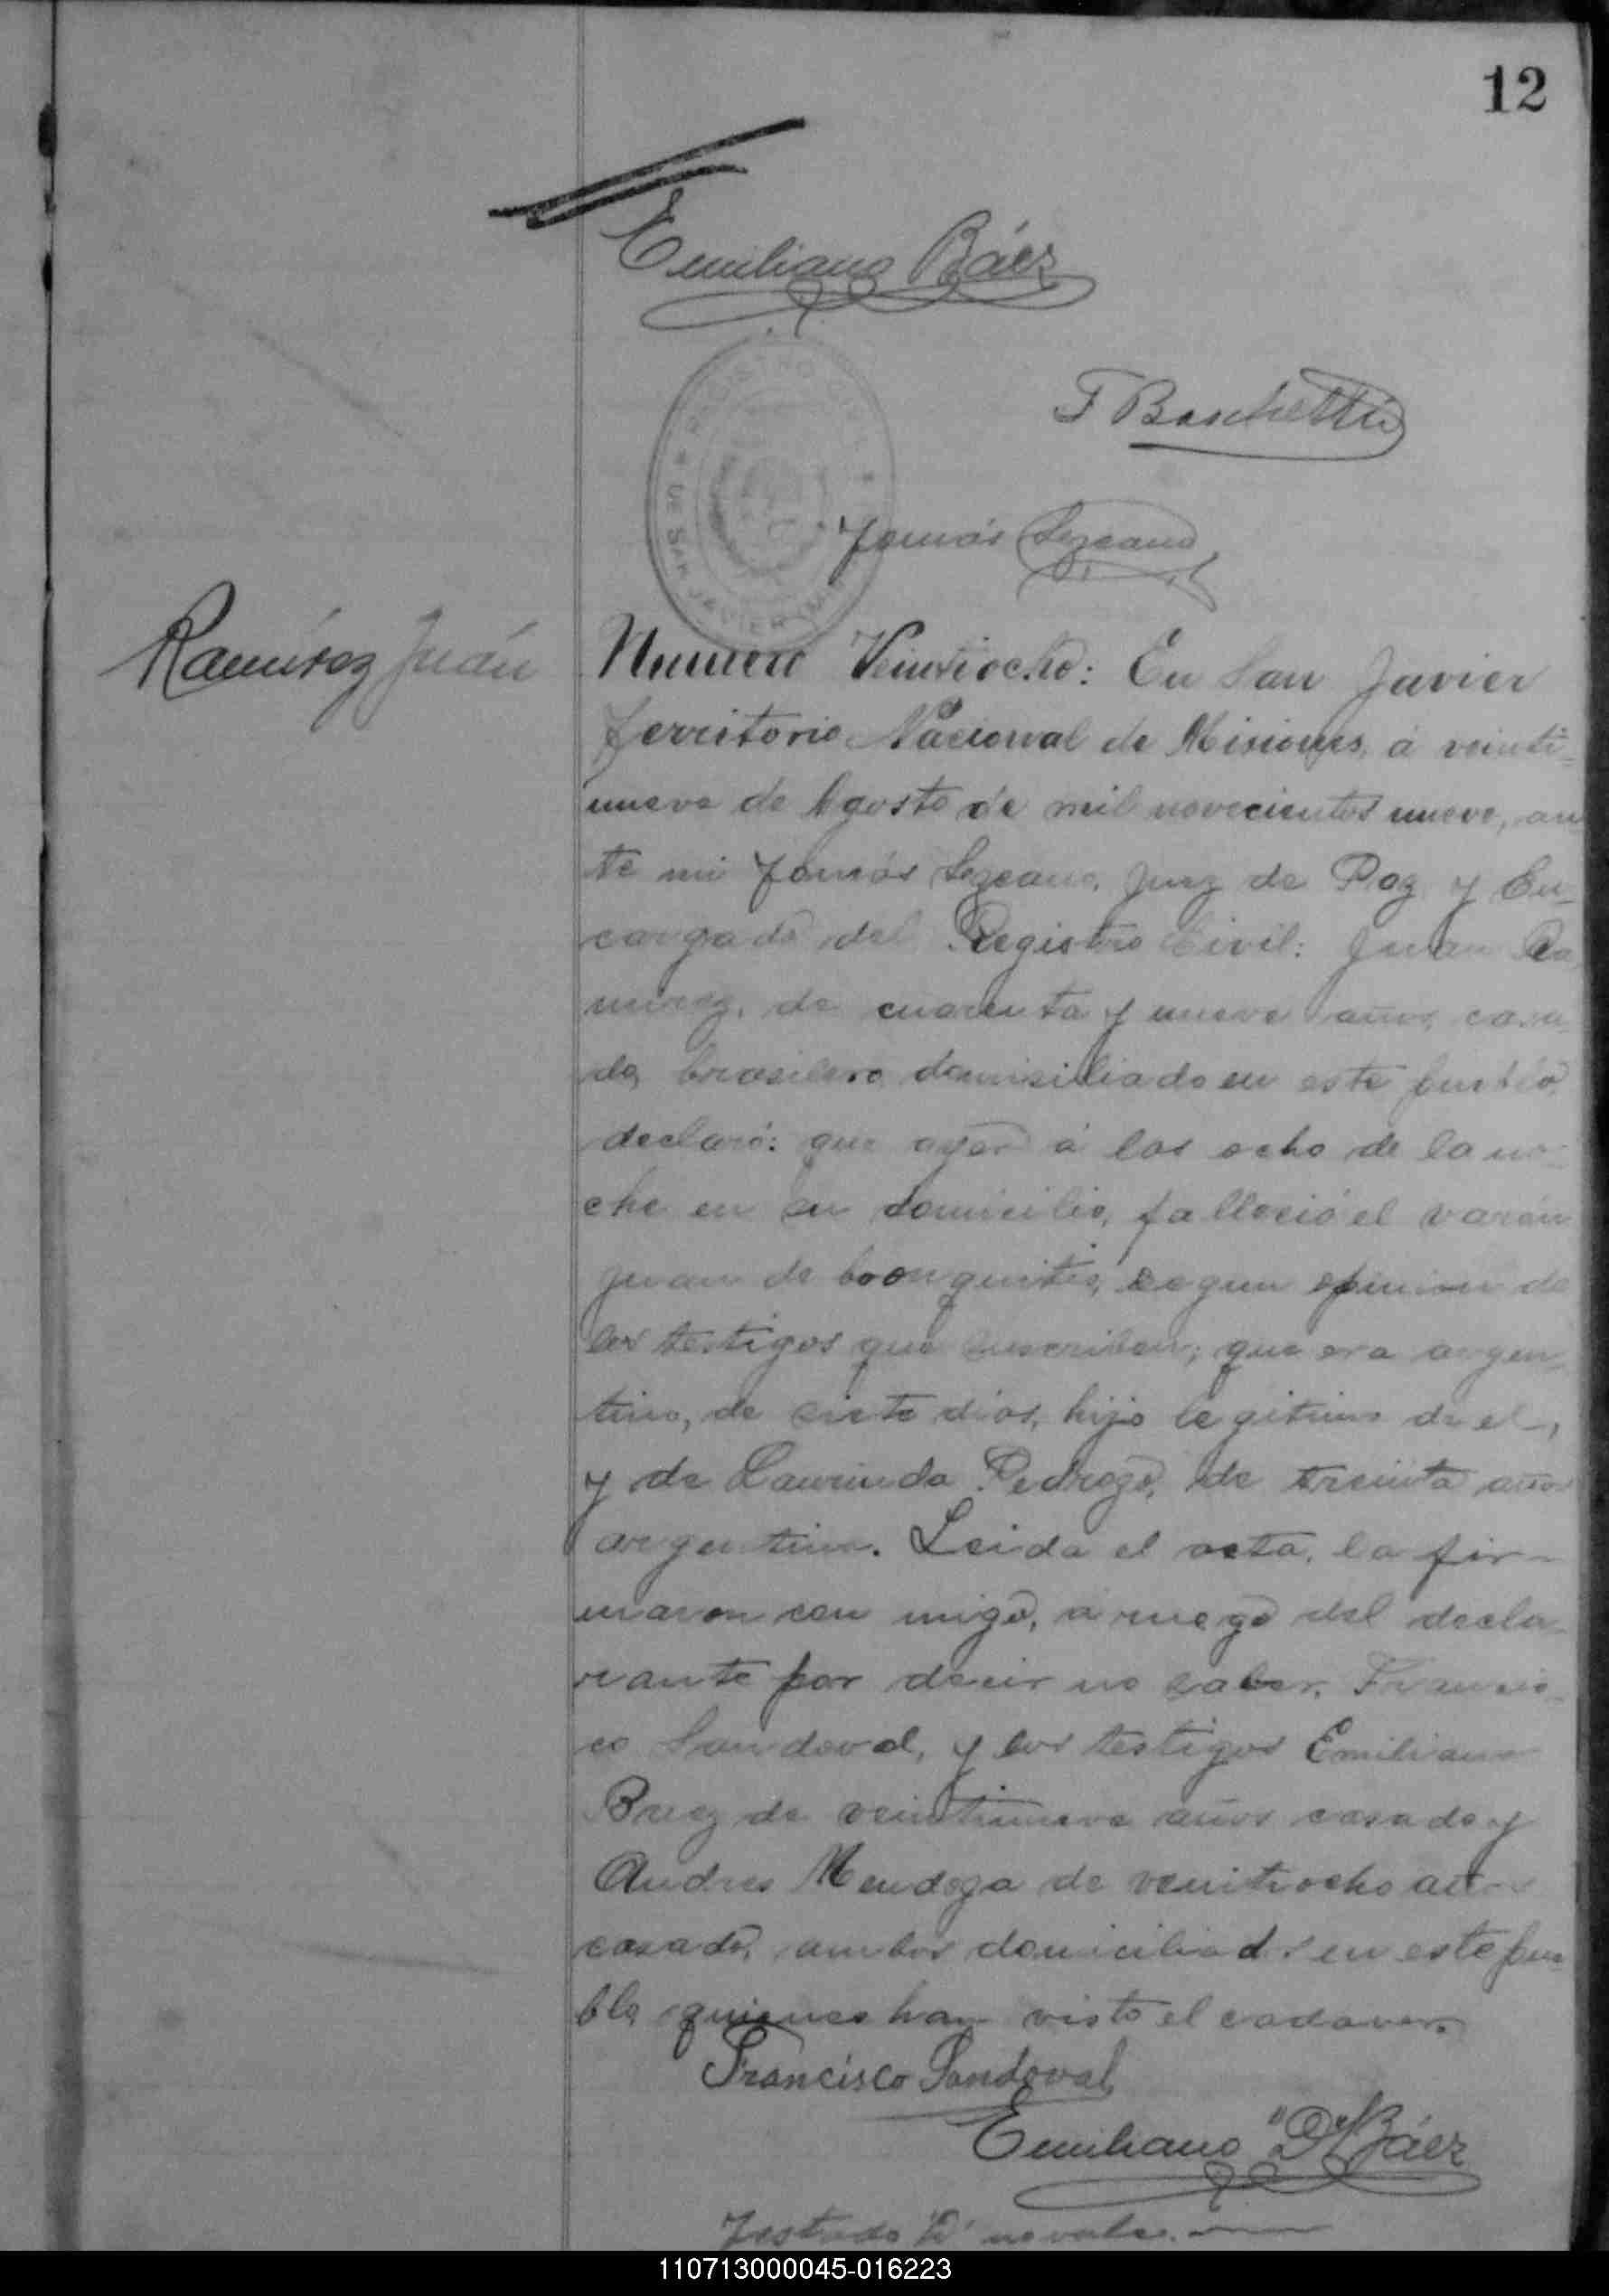 12
Emiliano Báez
F Boschetti
REGISTRO CIVIL
DE SAN JAVIER
Tomás Lezcano
Ramírez Juán
Numero Veintiocho: En San Javier
Territorio Nacional de Misiones, á veinti-
nueve de Agosto de mil novecientos nueve, an
te mi Tomás Lezcano, Juez de Paz y En-
cargado del Registro Civil: Juan Ra
mirez, de cuarenta y nueve años, casa-
do, brasilero domisiliado en este pueblo,
declaró: que ayer á las ocho de la no-
che en su domicilio, falleció el varón
Juan de bronquitis, segun opinion de
los testigos que suscriben; que era argen
tino, de siete dias, hijo legitimo de el,
y de Laurinda Pedrozo, de treinta años
argentina. Leida el acta, la fir-
maron con migo, á ruego del decla-
rante por decir no saber, Francis-
co Sandoval, y los testigos Emiliano
Baez de veintinueve años casado y
Andres Mendoza de veintiocho años
casado, ambos domiciliados en este pue-
blo quienes han visto el cadaver.
Francisco Sandoval
Emiliano "D" Báez
Testado "D" no vale.
110713000045-016223